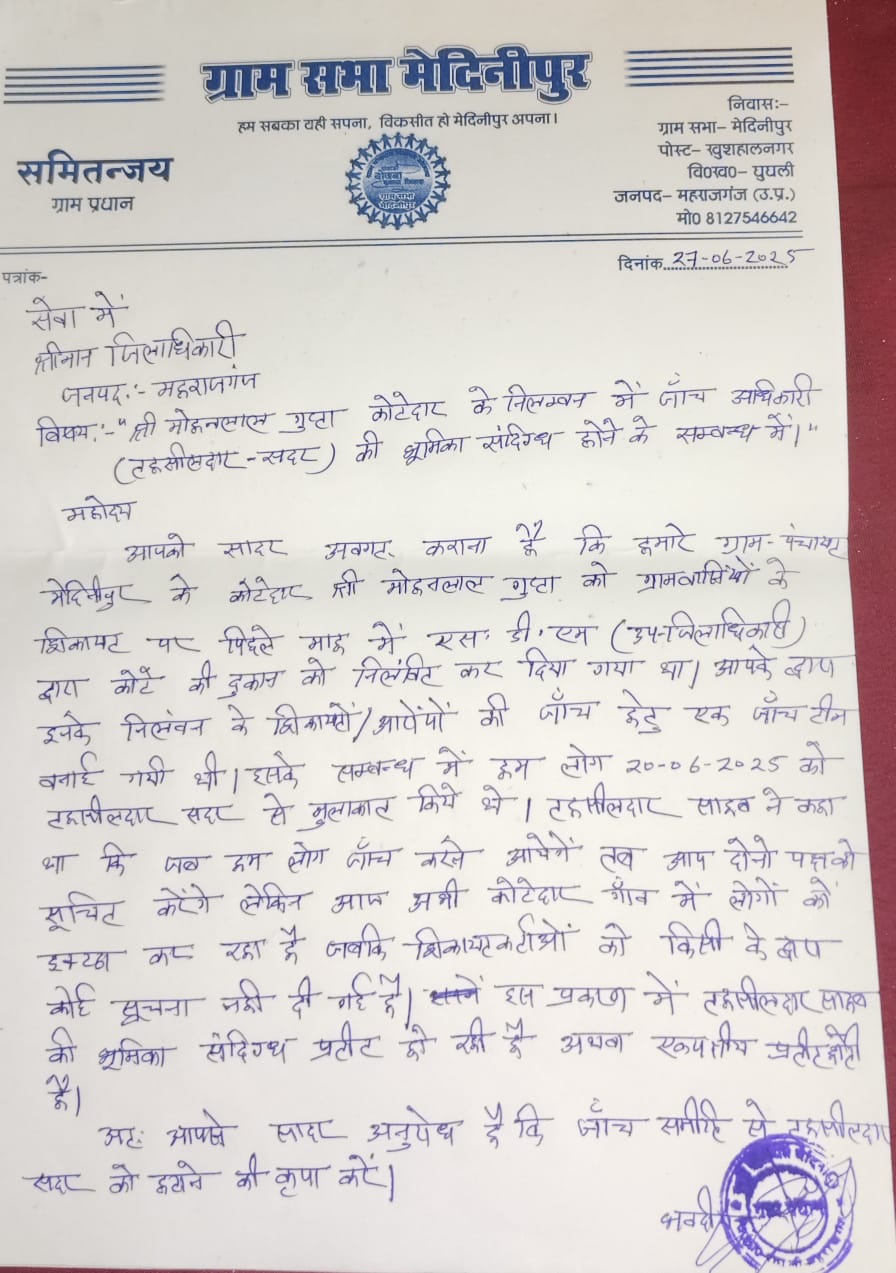 ग्राम सभा मेदिनीपुर
हम सबका यही सपना, विकसीत हो मेदिनीपुर अपना।
समितन्जय
ग्राम प्रधान
ग्राम सभा
मेदिनीपुर
निवासः-
ग्राम सभा- मेदिनीपुर
पोस्ट- खुशहालनगर
वि०ख०- घुघली
जनपद- महराजगंज (उ.प्र.)
मो0 8127546642
पत्रांक-
दिनांक 27-06-2025
सेवा में
श्रीमान जिलाधिकारी
जनपद:- महराजगंज
विषय:-" श्री मोहनलाल गुप्ता कोटेदार के निलम्बन में जाँच अधिकारी
(तहसीलदार-सदर) की भूमिका संदिग्ध होने के सम्बन्ध में।"
महोदय
आपको सादर अवगत कराना है कि हमारे ग्राम-पंचायत
मेदिनीपुर के कोटेदार श्री मोहनलाल गुप्ता को ग्रामवासियों के
शिकायत पर पिछले माह में एस. डी. एम (उप-जिलाधिकारी)
द्वारा कोटे की दुकान को निलंबित कर दिया गया था। आपके द्वारा
इनके निलंबन के शिकायतों/आरोपों की जाँच हेतु एक जाँच टीम
बनाई गयी थी। इसके सम्बन्ध में हम लोग 20-06-2025 को
तहसीलदार सदर से मुलाकात किये थे। तहसीलदार साहब ने कहा
था कि जब हम लोग जाँच करने आयेगें तब आप दोनो पक्ष को
सूचित करेंगे लेकिन आज अभी कोटेदार गाँव में लोगों को
इक्टठा कर रहा है जबकि शिकायतकर्ताओं को किसी के द्वारा
कोई सूचना नही दी गई है। इस प्रकरण में तहसीलदार साहब
की भूमिका संदिग्ध प्रतीत हो रही है अथवा एकपक्षीय प्रतीत होती
है।
अतः आपसे सादर अनुरोध है कि जाँच समीति से तहसीलदार
सदर को हटाने की कृपा करें।
भवदीय
ग्राम प्रधान